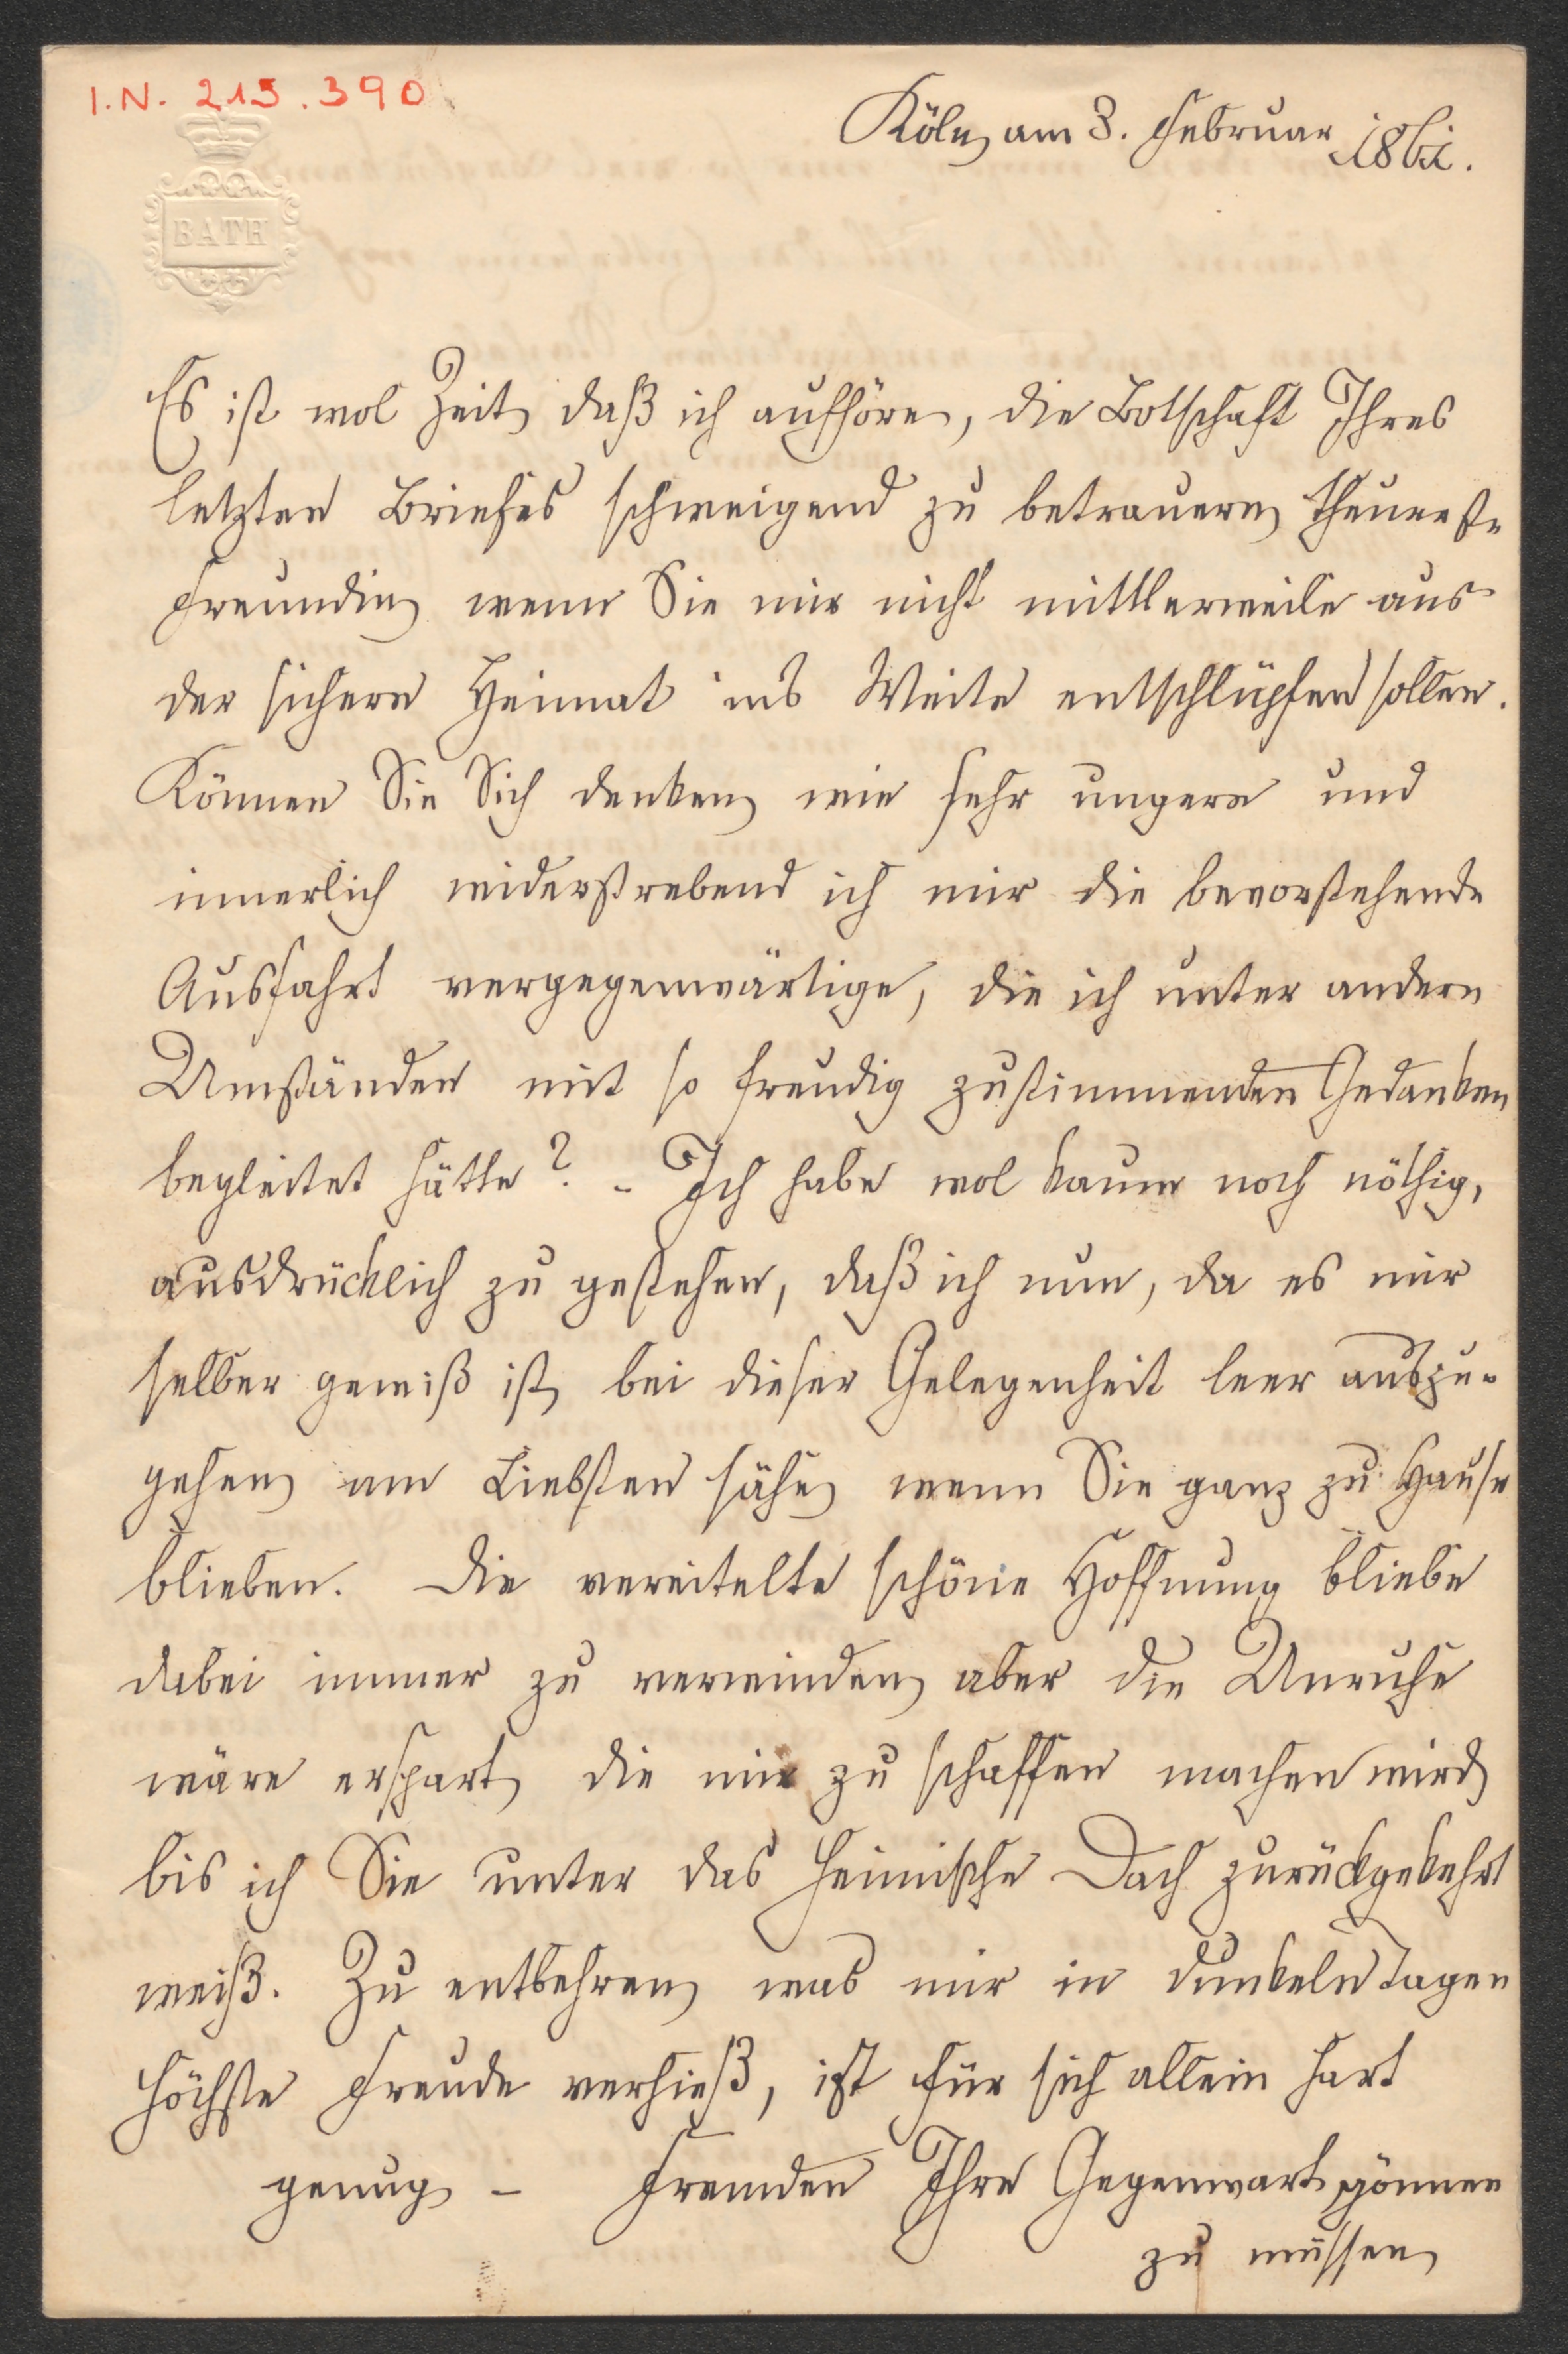 I.N. 215.390
BATH
Köln, am 3. Februar
Es ist wol Zeit, daß ich aufhöre, die Botschaft Ihres
letzten Briefes schweigend zu betrauern, theuerste
Freundin, wenn Sie mir nicht mittlerweile aus
der sichern Heimat ins Weite entschlüpfen sollen.
Können Sie Sich denken, wie sehr ungern und
innerlich widerstrebend ich mir die bevorstehende
Ausfahrt vergegenwärtige, die ich unter andern
Umständen mit so freudig zustimmenden Gedanken
begleitet hätte? – Ich habe wol kaum noch nöthig,
ausdrücklich zu gestehen, daß ich nun, da es mir
selber gewiß ist, bei dieser Gelegenheit leer auszu-
gehen, am Liebsten sähe, wenn Sie ganz zu Hause
blieben. Die vereitelte schöne Hoffnung bliebe
dabei immer zu verwinden, aber die Unruhe
wäre erspart, die mir zu schaffen machen wird,
bis ich Sie unter das heimische Dach zurückgekehrt
weiß. Zu entbehren, was mir in dunkeln Tagen
höchste Freude verhieß, ist für sich allein hart
genug, – Fremden Ihre Gegenwart gönnen
zu müssen,